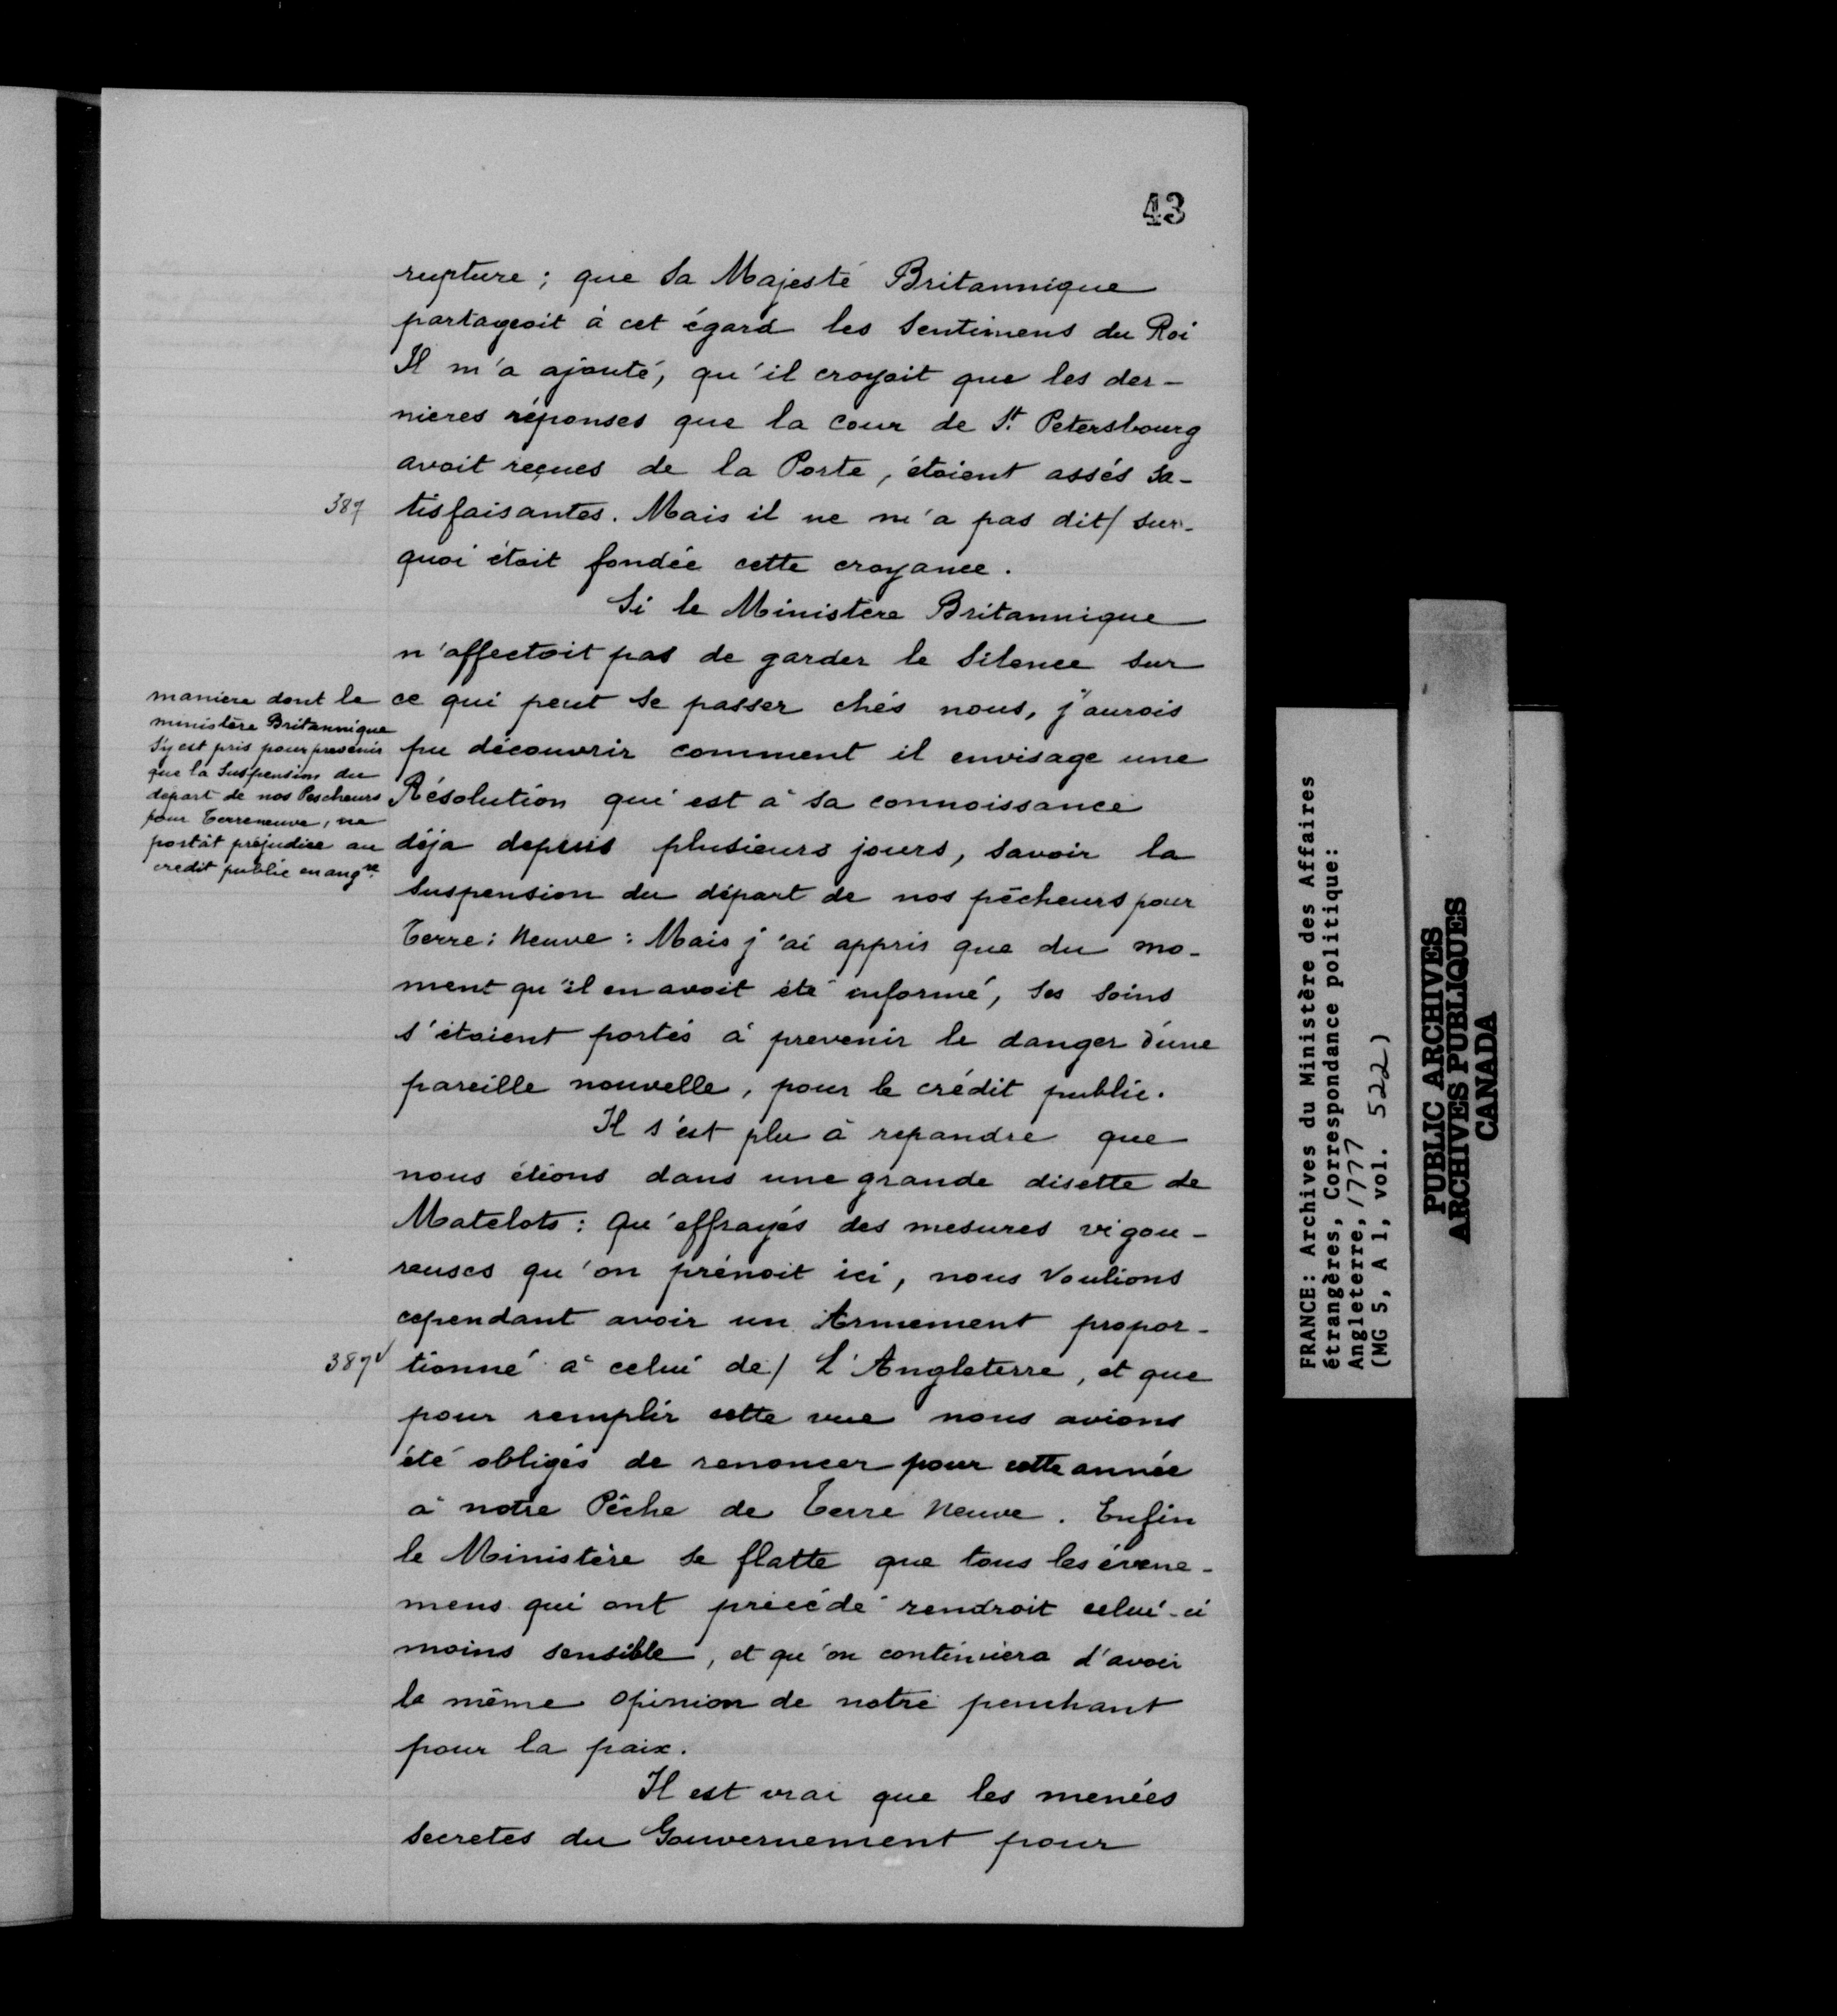 43
rupture; que Sa Majesté Britannique
partageoit à cet égard les Sentimens du Roi
Il m'a ajouté, qu'il croyait que les der-
nieres réponses que la Cour de St. Petersbourg
avoit reçues de la Porte, étoient assés Sa-
387
tisfaisantes. Mais il ne m'a pas dit/ sur-
quoi étoit fondée cette croyance.
Si le Ministère Britannique
n'affectoit pas de garder le Silence sur
maniere dont le
ministère Britannique
s'y est pris pour prevenir
que la Suspension du
départ de nos Pescheurs
pour Terreneuve, ne
portât préjudice au
credit public en angre.
ce qui peut se passer chés nous, j'aurois
pu découvrir comment il envisage une
Résolution qui est à sa connoissance
déja depuis plusieurs jours, savoir la
suspension du départ de nos pêcheurs pour
Terre: Neuve: Mais j'ai appris que du mo-
ment qu'il en avoit été informé, ses soins
s'étoient portés à prevenir le danger d'une
pareille nouvelle, pour le crédit public.
Il s'est plu à repandre que
nous étions dans une grande disette de
Matelots: Qu'effrayés des mesures vigou-
reuses qu'on prénoit ici, nous Voulions
cependant avoir un Armement propor-
387v
tionné à celui de/ L'Angleterre, et que
pour remplir cette vue nous avions
été obligés de renoncer pour cette année
à notre Pêche de Terre Neuve. Enfin
le Ministère se flatte que tous les évene-
mens qui ont précédé rendroit celui-ci
moins sensible, et qu'on continuera d'avoir
la même opinion de notre penchant
pour la paix.
Il est vrai que les menées
secretes du Gouvernement pour
FRANCE: Archives du Ministère des Affaires
étrangères, Correspondance politique:
Angleterre, 1777
(MG 5, A 1, vol. 522)
PUBLIC ARCHIVES
ARCHIVES PUBLIQUES
CANADA